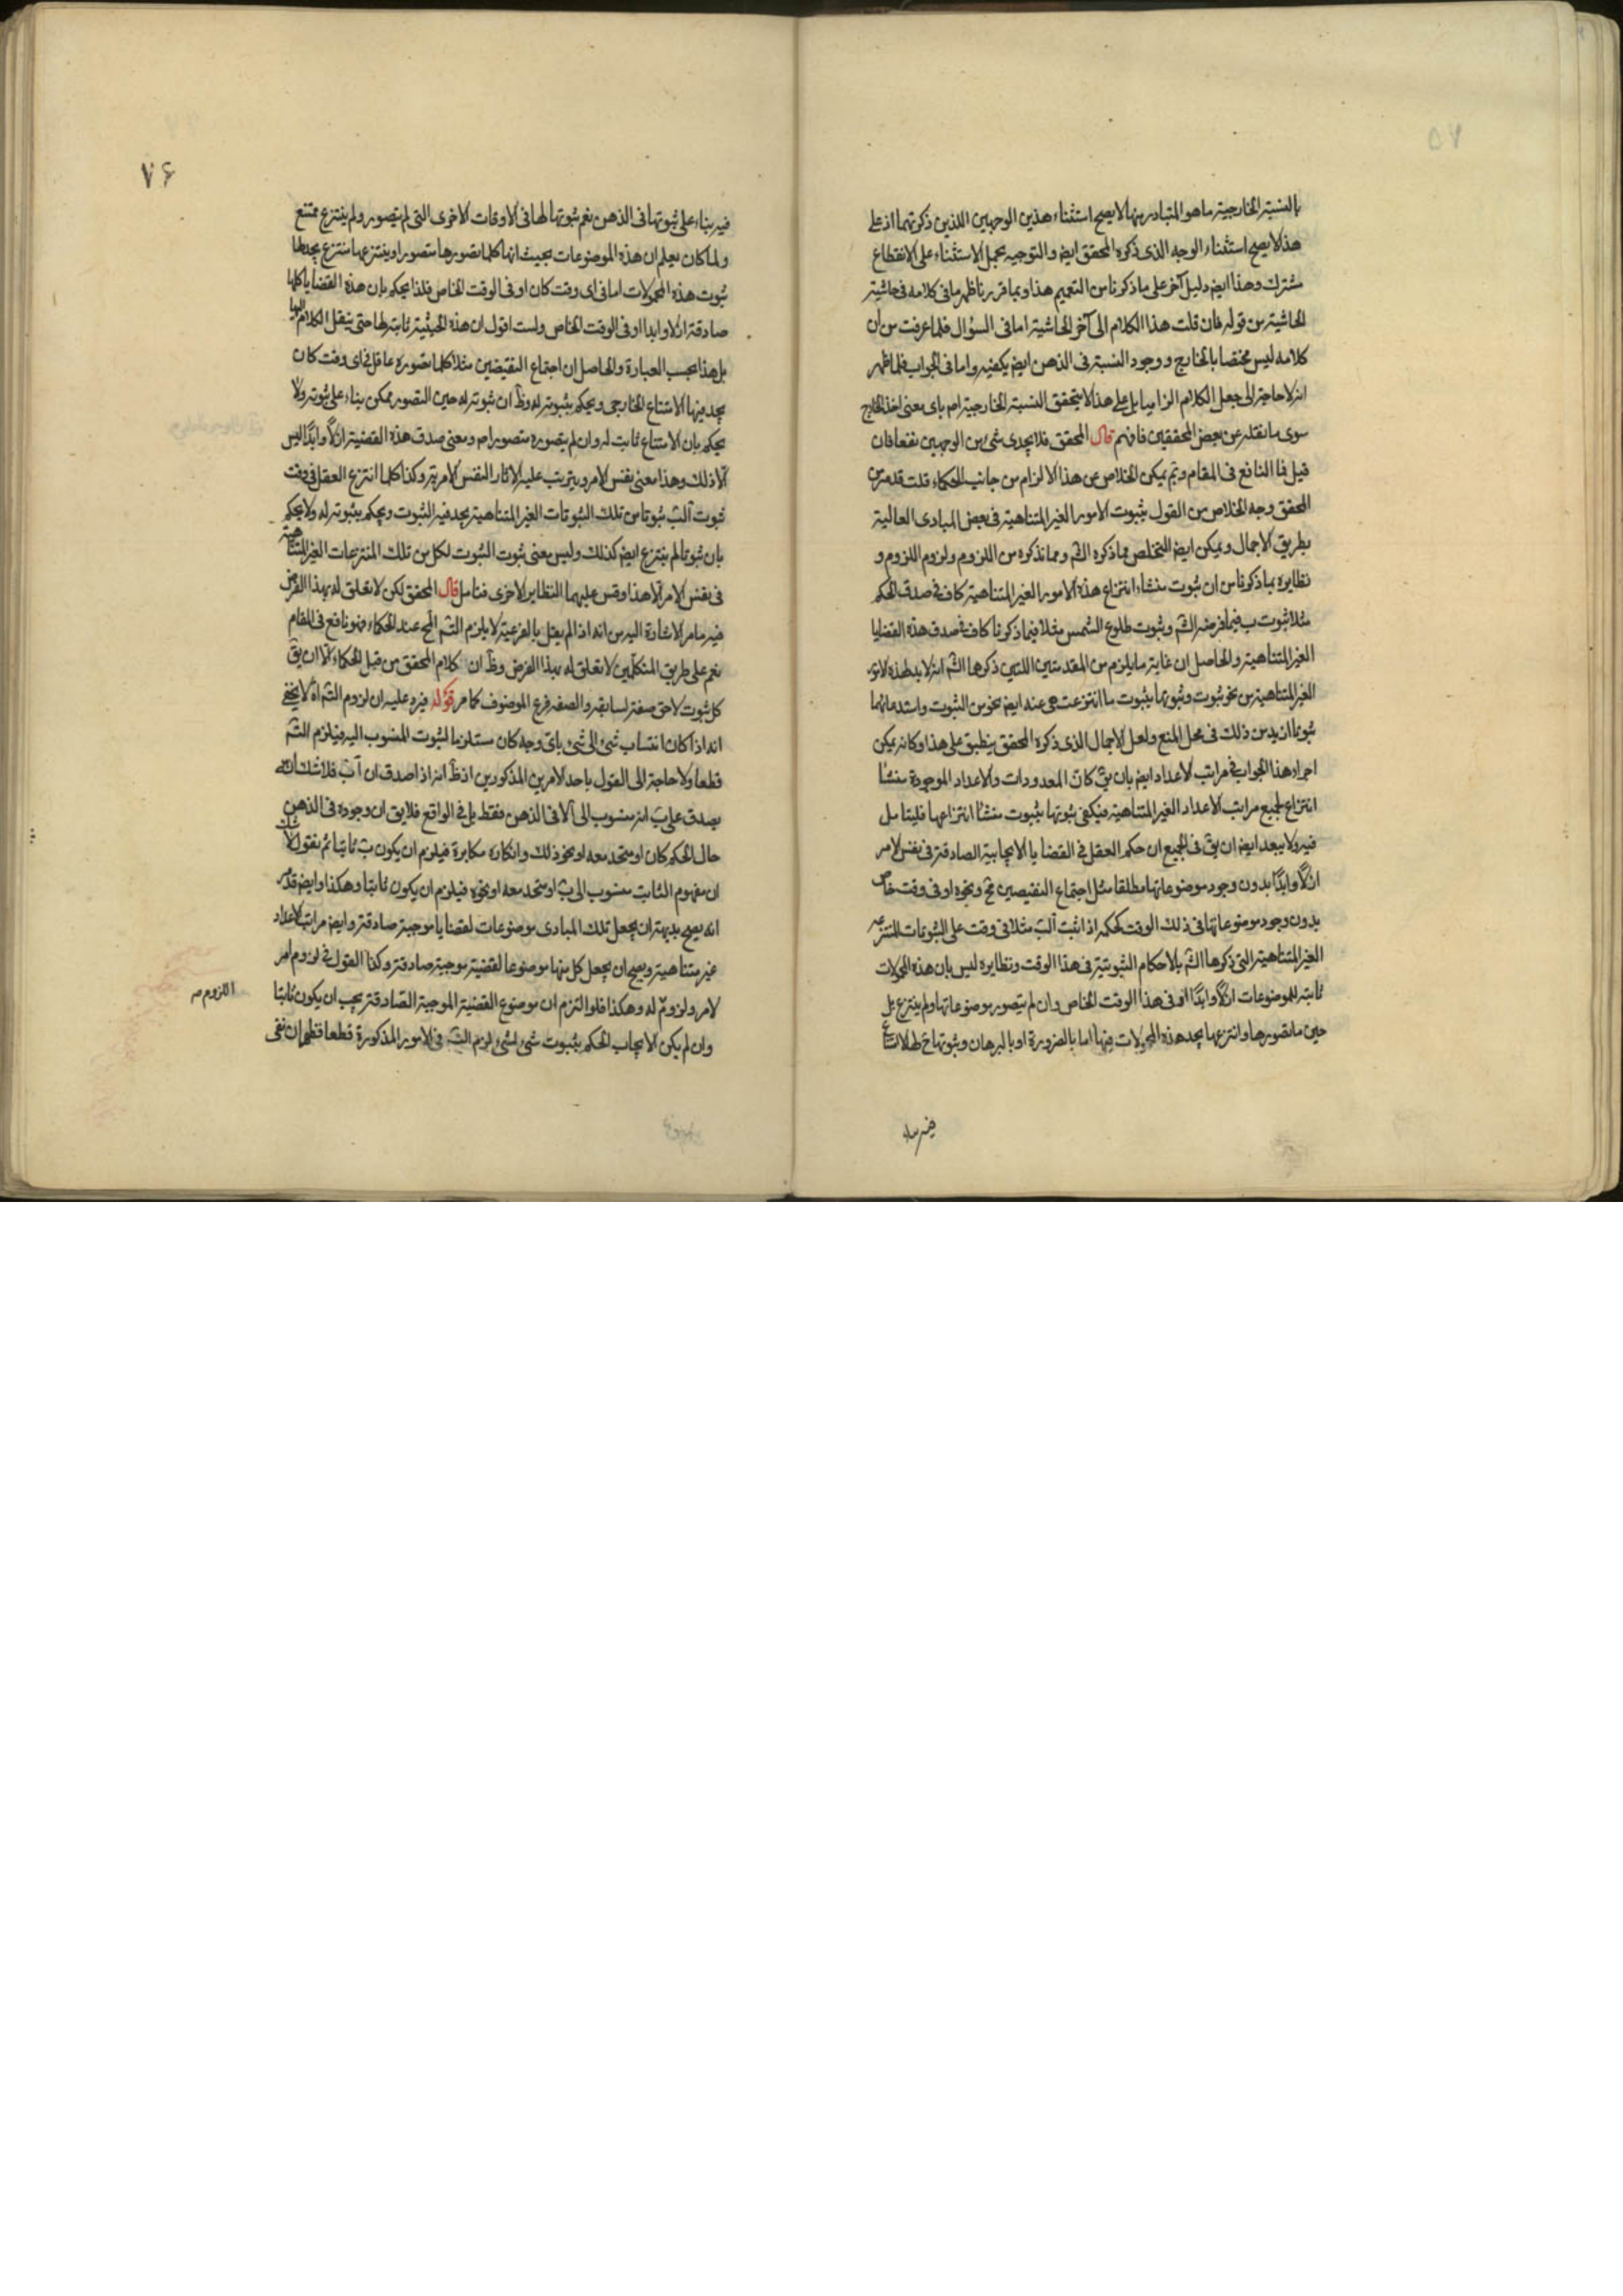 بالنسبة الخارجية ما هو المتبادر منها لا يصح استثناء هذين الوجهين اللذين ذكرتهما اذ على
هذا لا يصح استثناء الوجه الذى ذكره المحقق ايض والتوجيه بحمل الاستثناء على الانقطاع
مشترك وهذا ايض دليل آخر على ما ذكرنا من التعميم هذا وبما قررنا ظهر ما فى كلامه فى حاشية
الحاشية من قوله فان قلت هذا الكلام الى آخر الحاشية اما فى السؤال فلما عرفت من ان
كلامه ليس مختصا بالخارج ووجود النسبة فى الذهن ايض يكفيه واما فى الجواب فلما ظهر
انه لا حاجة الى جعل الكلام الزاميا بل على هذا لا يتحقق النسبة الخارجية ام باى معنى اخذ الخارج
سوى ما نقله عن بعض المحققين فافهم قال المحقق فلا يجدى شئ من الوجهين نفعا فان
قيل فما النافع فى المقام وبم يمكن الخلاص عن هذا الالزام من جانب الحكماء قلت قد مر من
المحقق وجه الخلاص من القول بثبوت الامور الغير المتناهية فى بعض المبادى العالية
بطريق الاجمال ويمكن ايض التخلص مما ذكره الش ومما نذكره من اللزوم ولزوم اللزوم و
نظايره بما ذكرنا من ان ثبوت منشاء انتزاع هذه الامور الغير المتناهية كاف فى صدق الحكم
مثلا ثبوت ب فيما فرضه الش وثبوت طلوع الشمس مثلا فيما ذكرنا كاف فى صدق هذه القضايا
الغير المتناهية والحاصل ان غاية ما يلزم من المقدمتين اللتين ذكرهما الش انه لا بد لهذه الامور
الغير المتناهية من نحو ثبوت وثبوتها بثبوت ما انتزعت هى عنه ايض نحو من الثبوت واستدعائهما
ثبوتا ازيد من ذلك فى محل المنع ولعل الاجمال الذى ذكره المحقق ينطبق على هذا وكانه يمكن
اجراء هذا الجواب فى مراتب الاعداد ايض بان يق كان المعدودات والاعداد الموجودة منشا
انتزاع لجميع مراتب الاعداد الغير المتناهية فيكفى ثبوتها بثبوت منشا انتزاعها فليتامل
فيه ولا يبعد ايض ان يق فى الجميع ان حكم العقل فى القضايا الايجابية الصادقة فى نفس الامر
ازلا وابدا بدون وجود موضوعاتها مطلقا مثل اجتماع النقيضين مح ونحوه او فى وقت خاص
بدون وجود موضوعاتها فى ذلك الوقت كحكمه اذا ثبت آلب مثلا فى وقت على الثبوتات المنتزعة
الغير المتناهية التى ذكرها الش بالاحكام الثبوتية فى هذا الوقت ونظايره ليس بان هذه المحمولات
ثابتة للموضوعات ازلا وابدا او فى هذا الوقت الخاص وان لم يتصور موضوعاتها ولم ينتزع بل
حين ما تصورها وانتزعها يجد هذه المحمولات فيها اما بالضرورة او بالبرهان وثبوتها ح لها لا
فيه بناء
٧۶
فيه بناء على ثبوتها فى الذهن نعم ثبوتها لها فى الاوقات الاخرى التى لم يتصور ولم ينتزع ممتنع
ولما كان يعلم ان هذه الموضوعات بحيث انها كلما تصورها متصور او ينتزعها منتزع يجد لها
ثبوت هذه المحمولات اما فى اى وقت كان او فى الوقت الخاص فلذا يحكم بان هذه القضايا كلها
صادقة ازلا وابدا او فى الوقت الخاص ولست اقول ان هذه الحيثية ثابتة لها حتى ينقل الكلام اليها
بل هذا بحسب العبارة والحاصل ان اجتماع النقيضين مثلا كلما تصوره عاقل فى اى وقت كان
يجد فيها الامتناع الخارجى ويحكم بثبوته له وظ ان ثبوته له حين التصور ممكن بناء على ثبوته ولا
يحكم بان الامتناع ثابت له وان لم يتصوره متصور ام ومعنى صدق هذه القضية ازلا وابدا ليس
الا ذلك وهذا معنى نفس الامر ويترتب عليه الاثار النفس الامرية وكذا كلما انتزع العقل فى وقت
ثبوت آلب ثبوتا من تلك الثبوتات الغير المتناهية يجد فيه الثبوت ويحكم بثبوته له ولا يحكم
بان ثبوتا لم ينتزع ايض كذلك وليس معنى ثبوت الثبوت لكل من تلك المنتزعات الغير المتناهية
فى نفس الامر الا هذا وقس عليهما النظاير الاخرى فتامل قال المحقق لكن لا تعلق له بهذا الفرض
فيه ما مر الاشارة اليه من انه اذا لم يقل بالفرعية لا يلزم التس المح عند الحكماء فهو نافع فى المقام
نعم على طريق المتكلمين لا تعلق له بهذا الفرض وظ ان كلام المحقق من قبل الحكماء الا ان يق
كل ثبوت لاحق صفة لسابقه والصفة فرع الموصوف كما مر قوله فيرد عليه ان لزوم التس اه لا يخفى
انه اذا كان انتساب شئ الى شئ باى وجه كان مستلزما لثبوت المنسوب اليه فيلزم التس
قطعا ولا حاجة الى القول باحد الامرين المذكورين اذ ظ انه اذا صدق ان آب فلا شك انه
يصدق على ب انه منسوب الى آ لا فى الذهن فقط بل فى الواقع فلا يق ان وجوده فى الذهن
حال الحكم كان او متحد معه او نحو ذلك وانكاره مكابرة فيلزم ان يكون ب ثابتا ثم نقول لا شك
ان مفهوم الثابت منسوب الى ب او متحد معه او نحوه فيلزم ان يكون ثابتا وهكذا وايض قد مر
انه يصح بديهة ان يجعل تلك المبادى موضوعات لقضايا موجبة صادقة وايض مراتب الاعداد
غير متناهية ويصح ان يجعل كل منها موضوعا لقضية موجبة صادقة وكذا القول فى لزوم امر
لامر ولزوم له وهكذا فلو التزم ان موضوع القضية الموجبة الصادقة يجب ان يكون ثابتا
اللزوم صح
وان لم يكن الايجاب الحكم بثبوت شئ لشئ لزم التس فى الامور المذكورة قطعا فظهر ان نفى